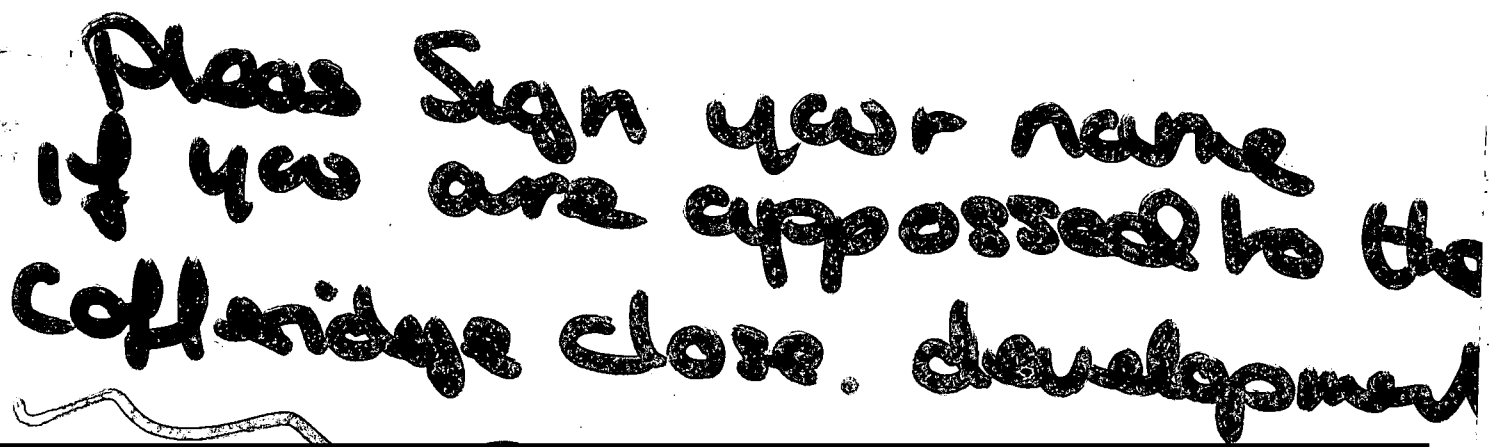 Pleas Sign your name
if you are appossed to the
Cofferidge Close. development